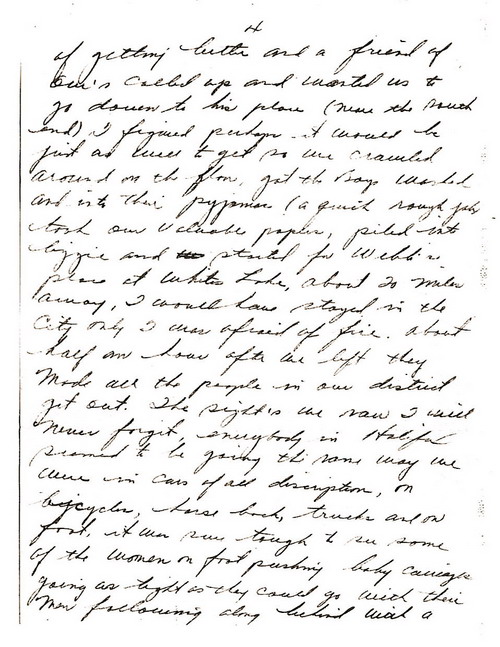 4
of getting better and a friend of
Em's called up and wanted us to
go down to his place (near the south
end) I figured perhaps it would be
just as well to get so we crawled
around on the floor, got the Boys washed
and into their pyjamas (a quick rough job
took our valuable papers, piled into
Lizzie and started for Webb's
place at White's Lake, about 20 miles
away, I would have stayed in the
City only I was afraid of fire. About
half an hour after we left they
made all the people in our district
get out. The sight's we saw I will
never forget, everybody in Halifax
seemed to be going the same way we
were in cars of all discription, on
bicycles, horse back, trucks and on
foot, it was sure tough to see some
of the women on foot pushing baby carriages
going as tight as they could go with their
men following along behind with a